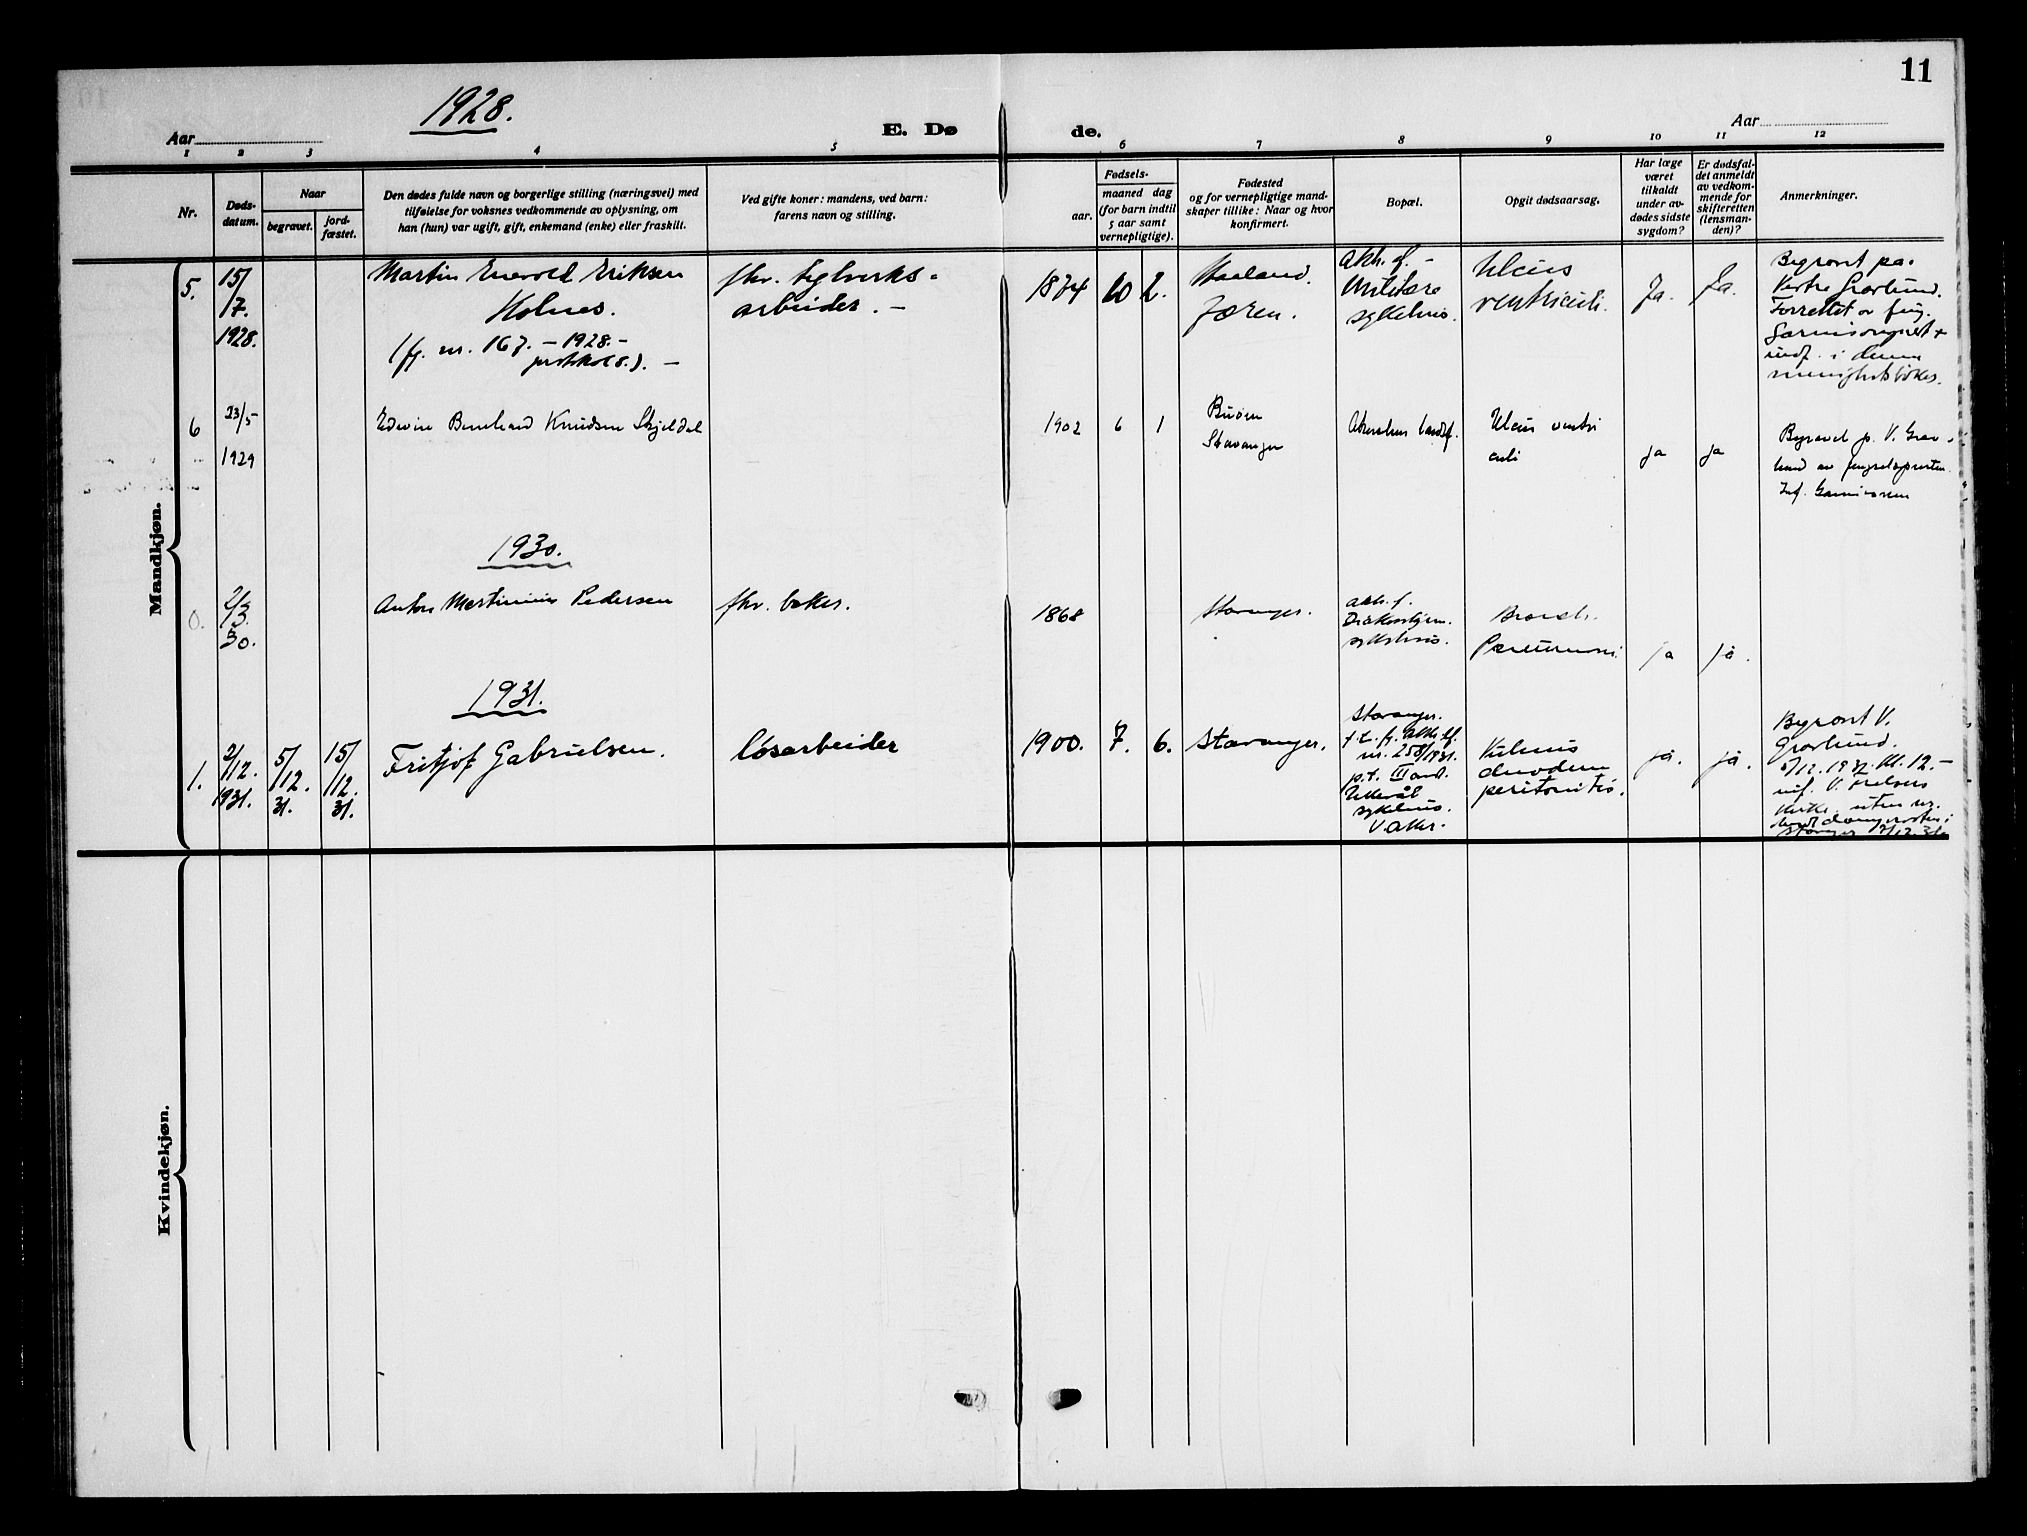 11
1928.
Aar
E. Dø
de.
Aar
1 2 3 4 5 6 7 8 9 10 11 12
Nr.
Døds-
datum.
Naar
begravet.
jord-
fæstet.
Den dødes fulde navn og borgerlige stilling (næringsvei) med
tilføielse for voksnes vedkommende av oplysning, om
han (hun) var ugift, gift, enkemand (enke) eller fraskilt.
Ved gifte koner: mandens, ved barn:
farens navn og stilling.
Fødsels-
aar.
maaned dag
(for barn indtil
5 aar samt
vernepligtige).
Fødested
og for vernepligtige mand-
skaper tillike: Naar og hvor
konfirmert.
Bopæl.
Opgit dødsaarsag.
Har læge
været
tilkaldt
under av-
dødes sidste
sygdom?
Er dødsfal-
det anmeldt
av vedkom-
mende for
skifteretten
(lensman-
den)?
Anmerkninger.
Mandkjøn.
5.
15/
7.
1928.
Martin Enevold Eriksen
Holnes.
(fg. nr. 167. – 1928. –
protokol 8.). –
fhv. teglverks-
arbeider. –
1874
10
2.
Jæren.
Akh. f. –
Militære
sykehus.
Ulcus
ventriculi.
Ja.
Ja.
Begravet paa
Vestre Gravlund.
Forrettet av fung.
i denne
6
23/5
1929
Edwin Bernhard Knudsen Skjeldal
1902
6
1
Buøen
Stavanger
Akershus landsf.
Ulcus ventri
culi
ja
ja
Begravet p. V. Grav-
lund av fengselspresten
Inf. Garnisonen
1930.
0.
2/
3.
30.
Anton Martinius Pedersen
fhv. baker.
1868
Stavanger.
akh. f.
Diakonhjem.
sykehus.
Bronch.
Pneumoni
ja
ja.
1931.
1.
2/
12.
1931.
5/
12.
31.
15/
12.
31.
Fritjof Gabrielsen.
løsarbeider
1900.
7.
6.
Stavanger.
Stavanger.
f. t. fg. Akh. lf.
nr. 258/1931.
p.t. III avd.
Ullevål
sykehus.
V. Aker.
Ulcus
duodeni
peritonitis.
ja.
ja.
Begravet V.
Gravlund.
5/12. 1931. Kl. 12. –
V. Frelsers
Kirke. uten
Stavanger
Kvindekjøn.